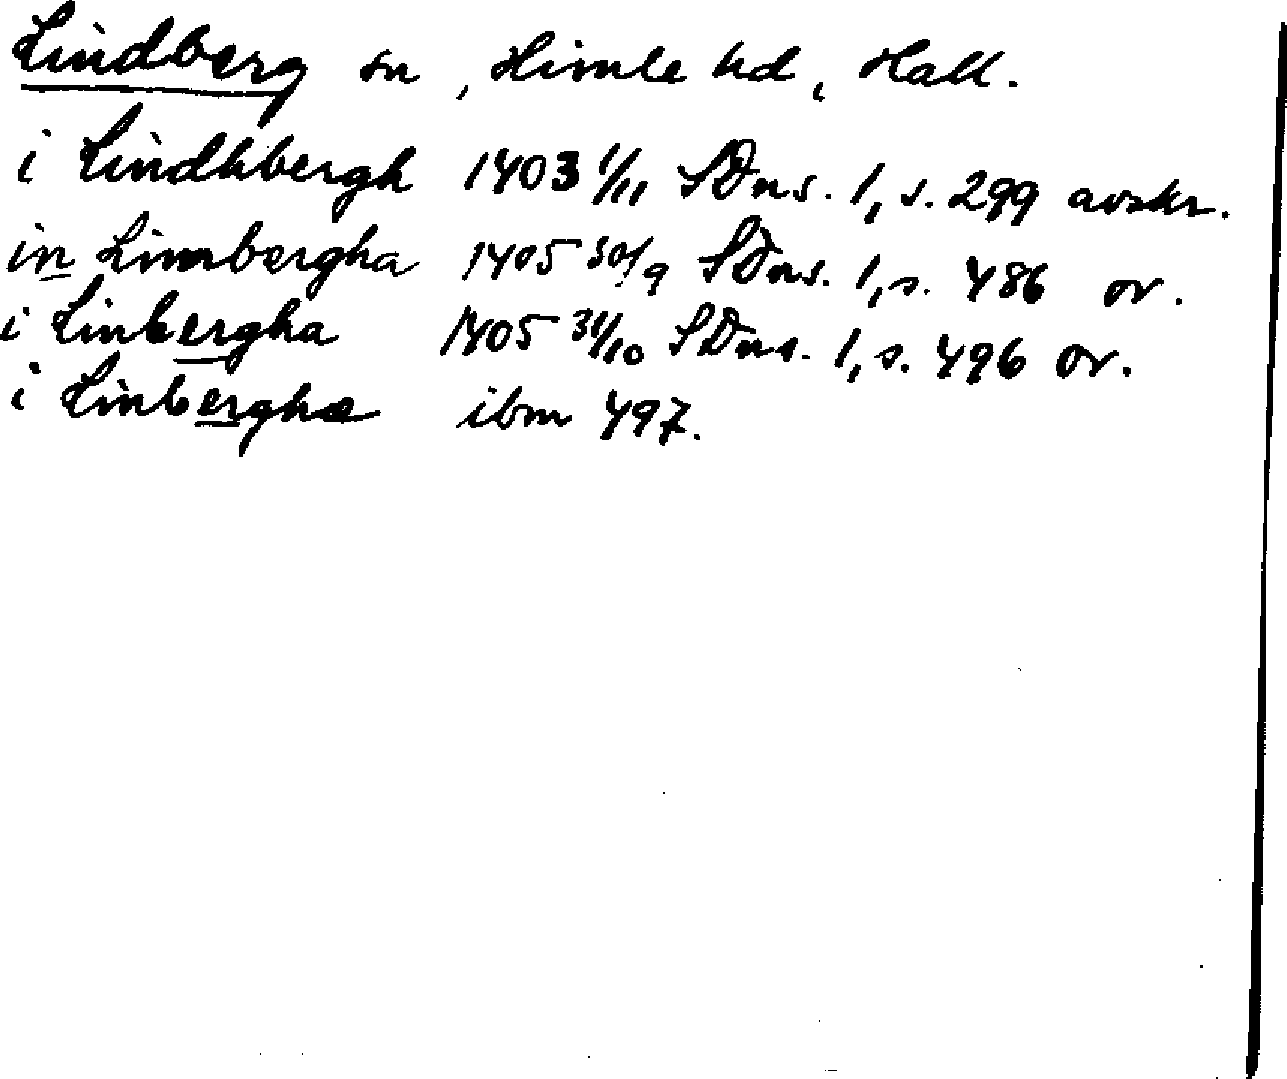 Lindberg sn, Himle hd, Hall.
i Lindhbergh 1403 1/11 SDns. 1, s. 299 avskr.
in Limbergha 1405 30/9 SDns. 1, s. 486 or.
i Linbergha 1405 31/10 SDns. 1, s. 496 or.
i Linberghæ ibm 497.